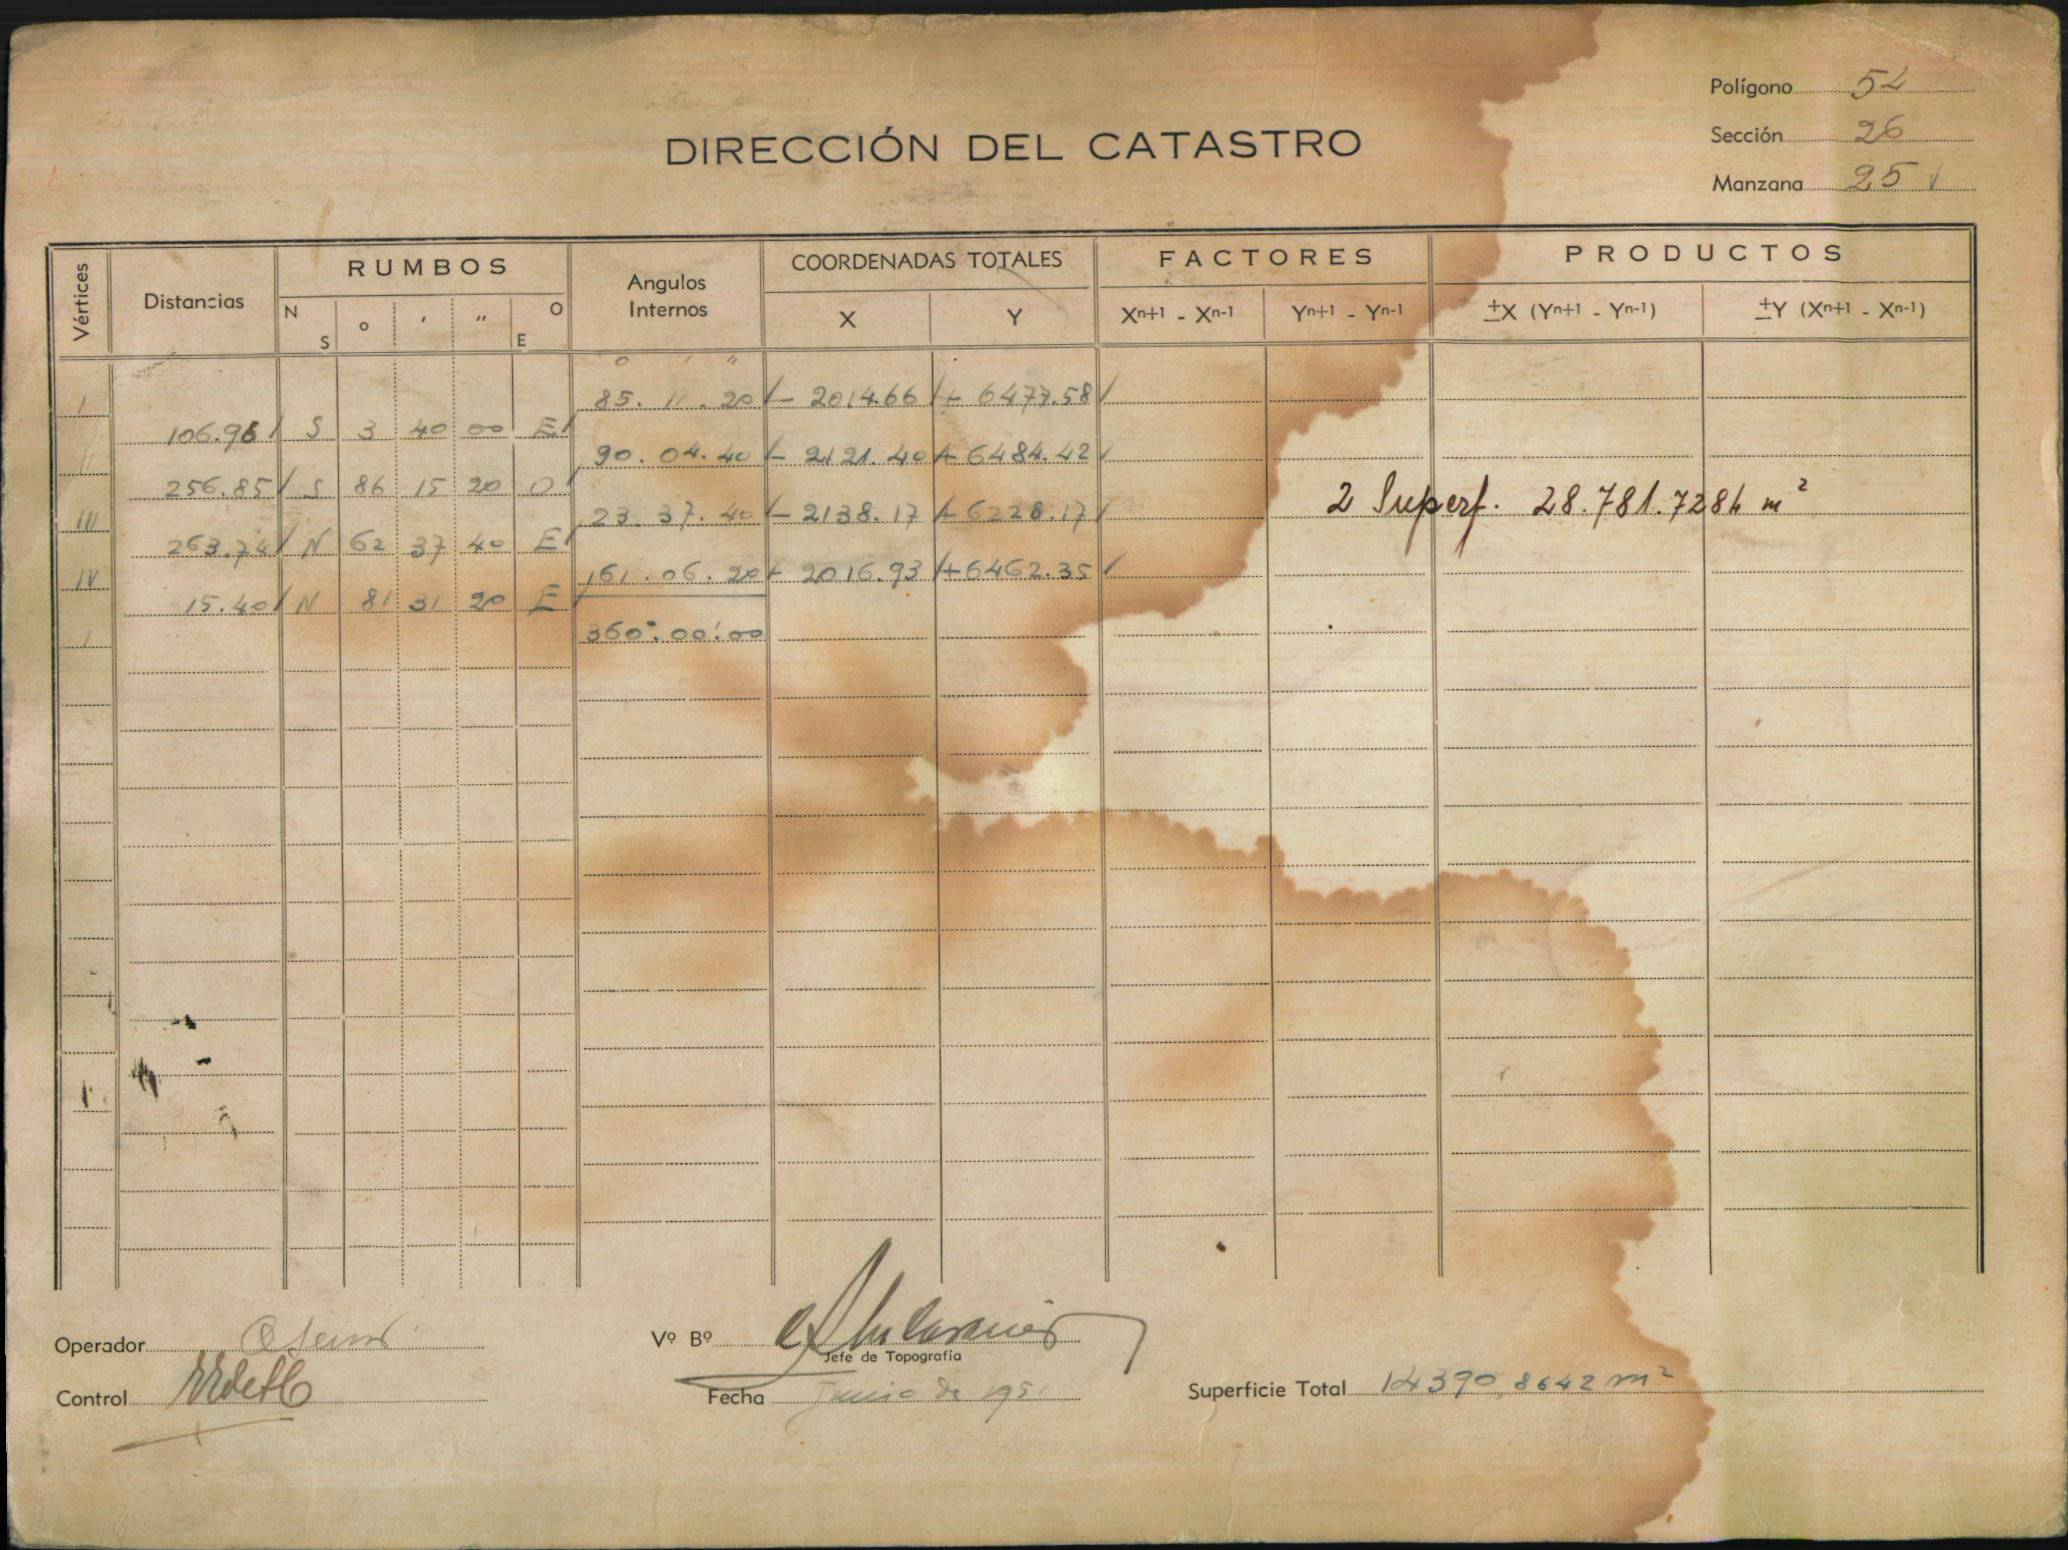 Polígono 54
Sección 26
Manzana 25
DIRECCIÓN DEL CATASTRO
Vértices Distancias RUMBOS Angulos Internos COORDENADAS TOTALES FACTORES PRODUCTOS
N S o ' " O E X Y Xn+1 - Xn-1 Yn+1 - Yn-1 ±X (Yn+1 - Yn-1) ±Y (Xn+1 - Xn-1)
o ' "
I 85. 11. 20 - 2014.66 + 6477.58
106.96 S 3 40 00 E
II 90. 04. 40 - 2121.40 + 6484.42
256.85 S 86 15 20 O
2 Superf. 28.781.7284 m²
III 23. 37. 40 - 2138.17 + 6228.17
263.74 N 62 37 40 E
IV 161. 06. 20 - 2016.93 + 6462.35
15.40 N 81 31 20 E
I 360°.00'.00
Operador
Vº Bº
Jefe de Topografía
Control
Fecha Junio de 1951
Superficie Total 14390,8642 m²